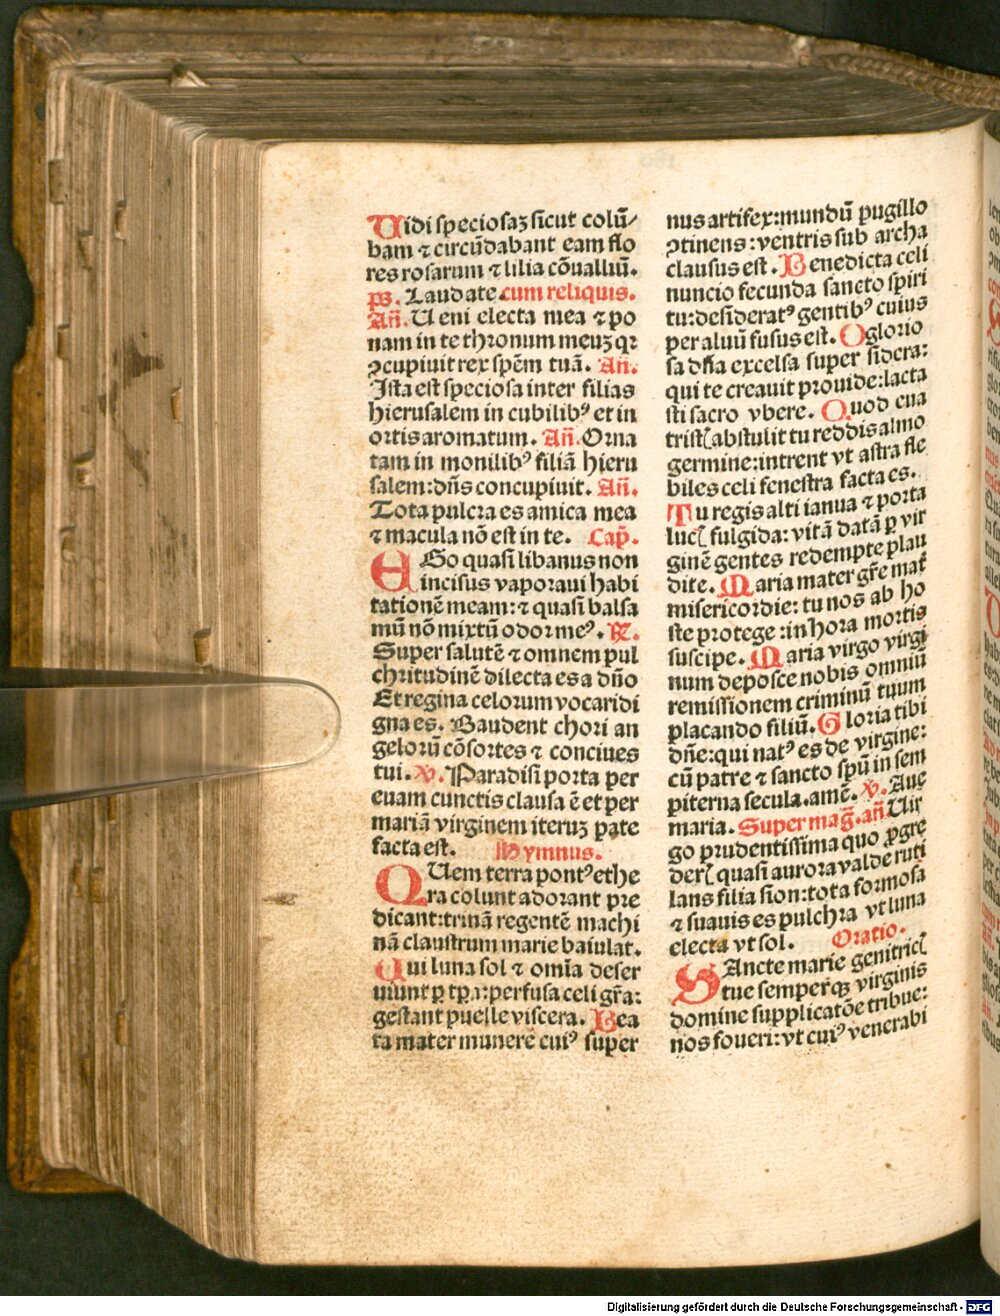 Uidi speciosaʒ sicut colū/
bam ⁊ circūdabant eam flo
res rosarum ⁊ lilia cōualliū.
p̄s. Laudate cum reliquis.
Añ. Ueni electa mea ⁊ po
nam in te thronum meuʒ qꝛ
ↄcupiuit rex spēm tuā. Añ.
Ista est speciosa inter filias
hierusalem in cubilibꝰ et in
ortis aromatum. Añ. Orna
tam in monilibꝰ filiā hieru
salem: dñs concupiuit. Añ.
Tota pulcra es amica mea
⁊ macula nō est in te. Cap̄.
EGo quasi libanus non
incisus vaporaui habi
tationē meam: ⁊ quasi balsa
mū nō mixtū odor meꝰ. ℟.
Super salutē ⁊ omnem pul
chritudinē dilecta es a dño
Et regina celorum vocari di
gna es. Gaudent chori an
gelorū cōsortes ⁊ conciues
tui. ℣. Paradisi porta per
euam cunctis clausa ē et per
mariā virginem iteruʒ pate
facta est. Hymnus.
QUem terra pontꝰ ethe
ra colunt adorant pre
dicant: trinā regentē machi
nā claustrum marie baiulat.
Qui luna sol ⁊ om̄ia deser
uiunt ꝑ tp̄a: perfusa celi gr̄a:
gestant puelle viscera. Bea
ta mater munere cuiꝰ super
nus artifex: mundū pugillo
ↄtinens: ventris sub archa
clausus est. Benedicta celi
nuncio fecunda sancto spiri
tu: desideratꝰ gentibꝰ cuius
per aluū fusus est. O glorio
sa dn̄a excelsa super sidera:
qui te creauit prouide: lacta
sti sacro vbere. Quod eua
tristꝭ abstulit tu reddis almo
germine: intrent vt astra fle
biles celi fenestra facta es.
Tu regis alti ianua ⁊ porta
lucꝭ fulgida: vitā datā ꝑ vir
ginē gentes redempte plau
dite. Maria mater gr̄e mat̄
misericordie: tu nos ab ho
ste protege: in hora mortis
suscipe. Maria virgo virgi
num deposce nobis omniū
remissionem criminū tuum
placando filiū. Gloria tibi
dn̄e: qui natꝰ es de virgine:
cū patre ⁊ sancto spū in sem
piterna secula. amē. ℣. Aue
maria. Super mag̃. añ. Uir
go prudentissima quo ꝓgre
derꝭ quasi aurora valde ruti
lans filia sion: tota formosa
⁊ suauis es pulchra vt luna
electa vt sol. Oratio.
SAncte marie genitricꝭ
tue semperqꝫ virginis
domine supplicatōe tribue:
nos foueri: vt cuiꝰ venerabi
Digitalisierung gefördert durch die Deutsche Forschungsgemeinschaft - DFG